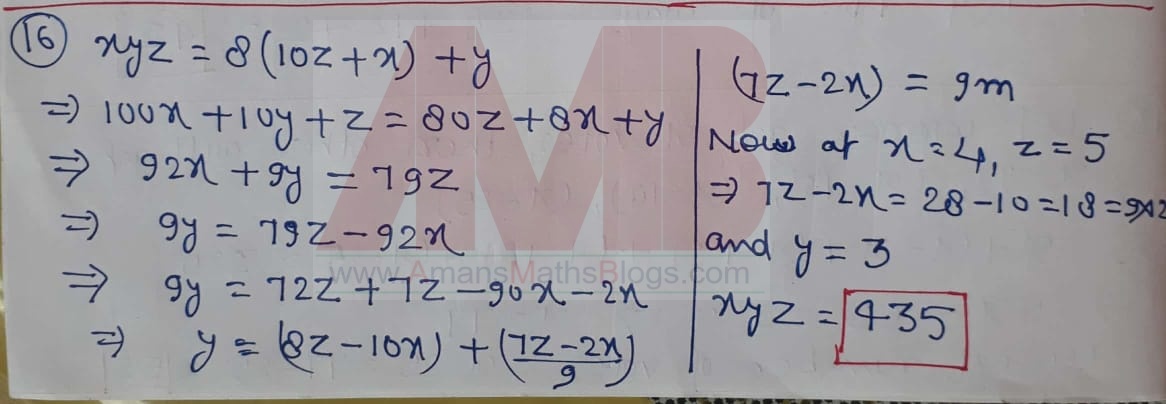 16 xyz = 8(10z+x) + y
=) 100x + 10y + z = 80z + 8x + y
=> 92x + 9y = 79z
=) 9y = 79z - 92x
=> 9y = 72z + 7z - 90x - 2x
=) y = (8z - 10x) + (7z - 2x / 9)
(7z - 2x) = 9m
Now at x = 4, z = 5
=> 7z - 2x = 28 - 10 = 18 = 9x2
and y = 3
xyz = 435
AMB
www.AmansMathsBlogs.com